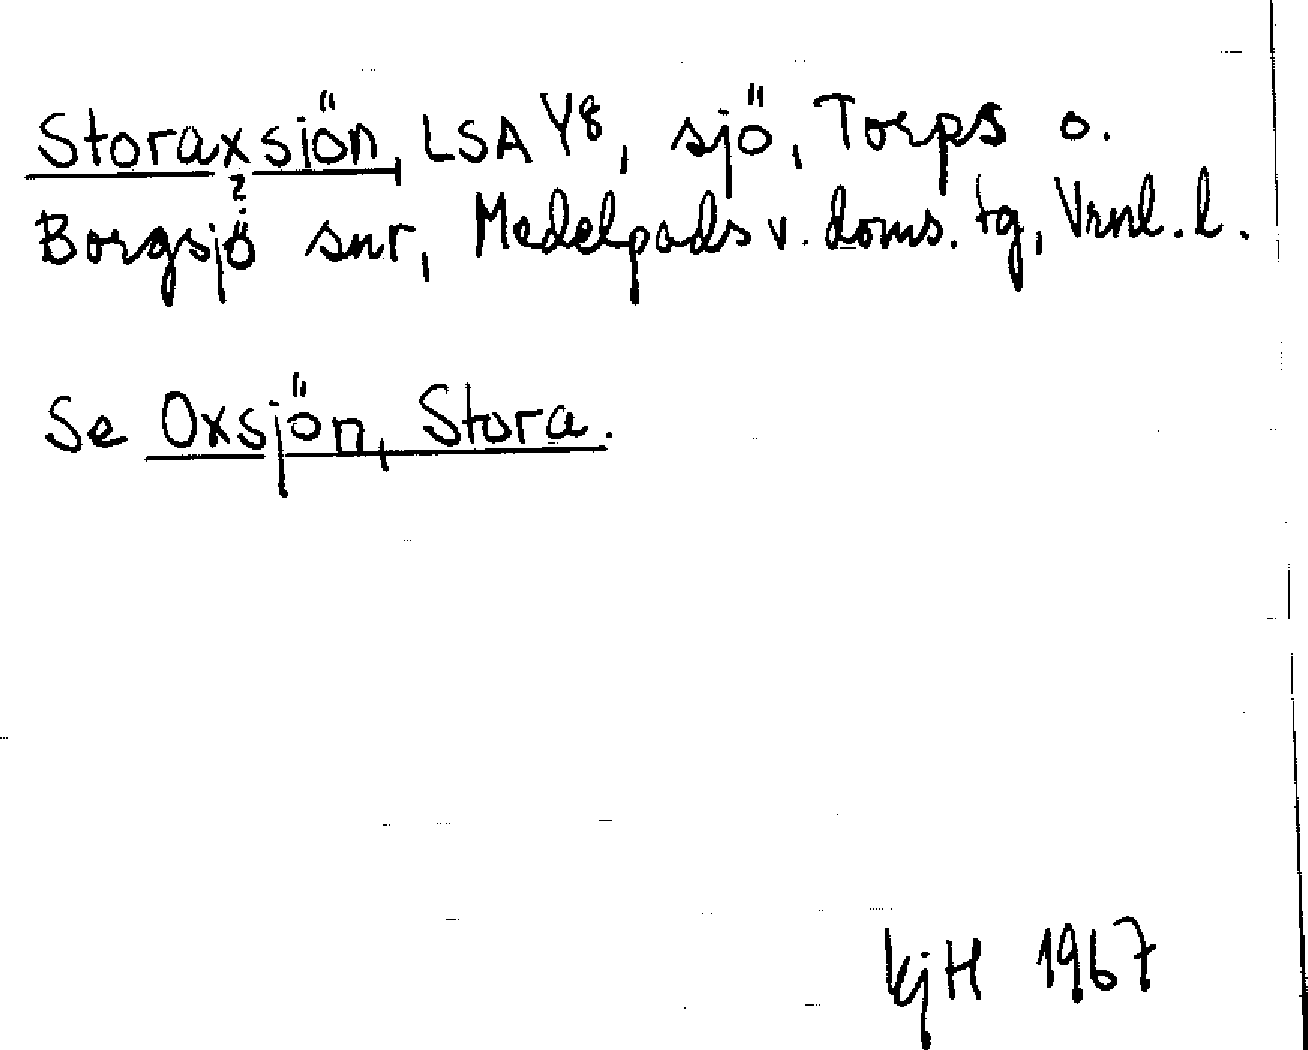 Storaxsjön, LSA Y8, sjö, Torps o.
?
Borgsjö snr, Medelpads v. doms. tg, Vrnl. l.
Se Oxsjön, Stora.
kjH 1967